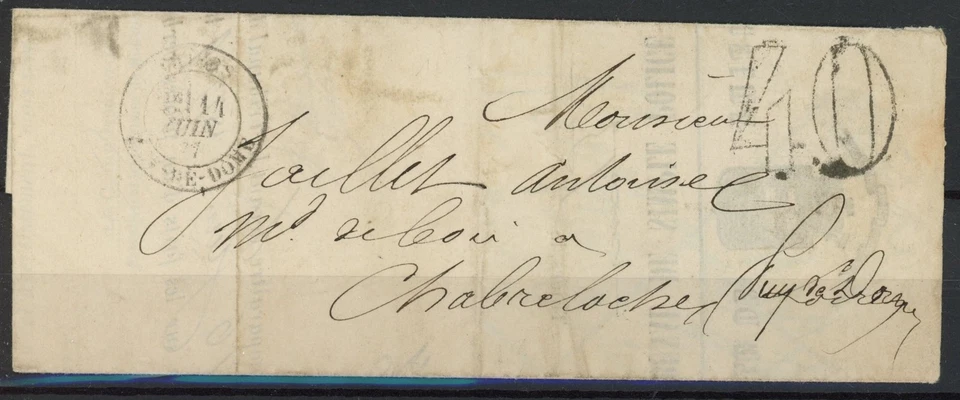 14
JUIN
DE-DOME
40
Monsieur
Jaillet Antoine
Md. de bois a
Chabreloche (Puy de Dome